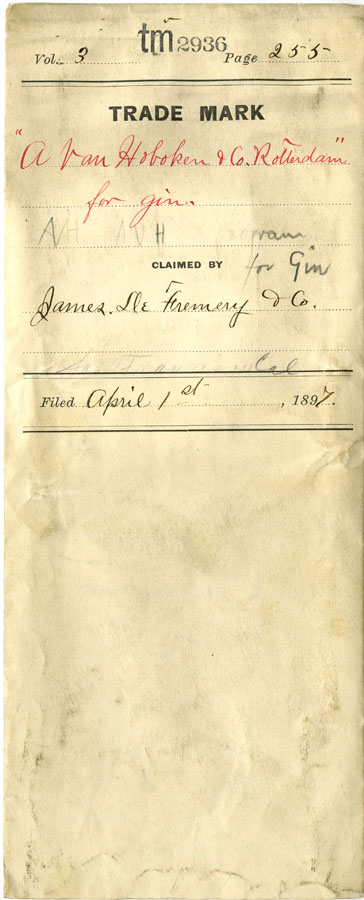 tm 2936
Vol. 3 Page 255
TRADE MARK
"A Van Hoboken & Co. Rotterdam"
for gin.
AVH
CLAIMED BY for Gin
James. De Fremery & Co.
Cal
Filed April 1st , 1897.